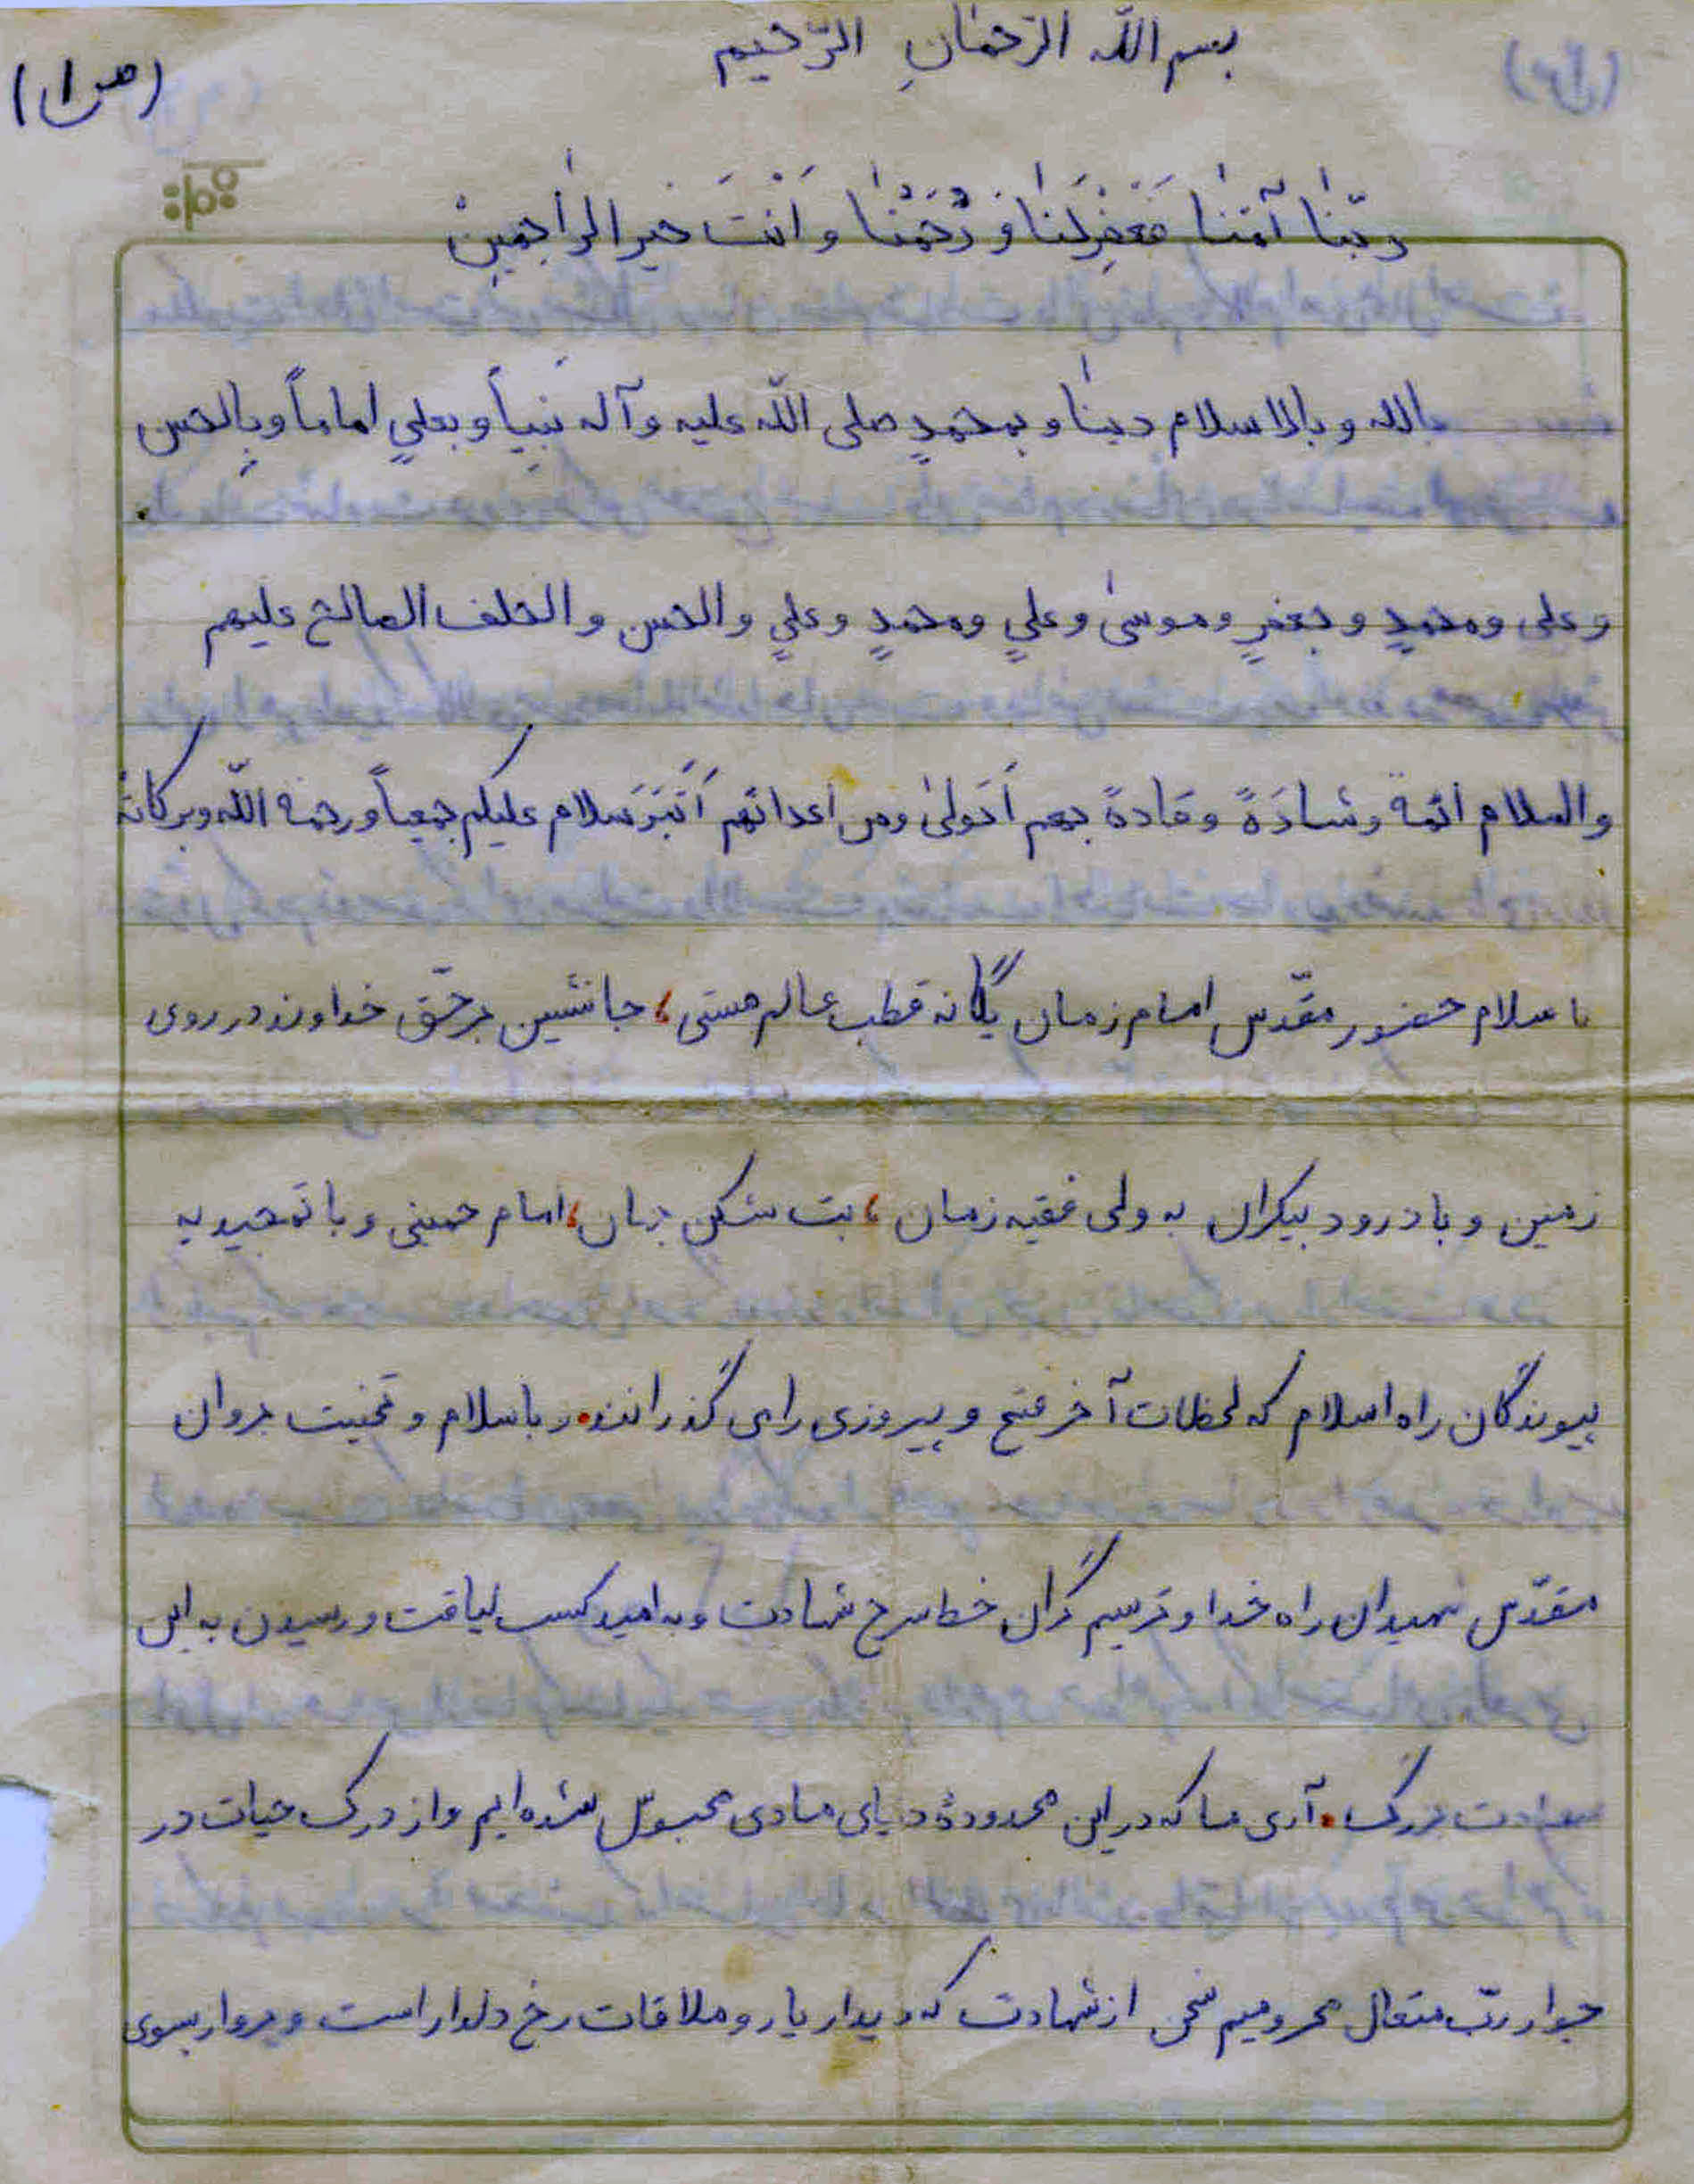 بسم اللّه الرّحمٰانِ الرّحیم
(ص ۱)
ربّنٰا آمَنٰا فَغفِرلَنٰا وَرْحَمْنٰا وَ اَنْتَ خیر الرٰاحِمینْ
باللّه و بالاسلام دینٰا و بمحمدٍ صلی اللّه علیه و آله نَبِیاً و بعلیٍ اماماً و بِالحسن
و علی و محمدٍ و جعفرٍ و موسیٰ و علیٍ و محمدٍ و علیٍ و الحسن و الخلف الصالح علیهم
والسلام ائمة وسٰادَةً و قادةً بهم اَتَولیٰ ومن اعدائهم اَتَبَرَ سلام علیکم جمیعاً و رحمة اللّه و برکاتهُ
با سلام حضور مقدّس امام زمان یگانه قطب عالم هستی، جانشین برحّق خداوند در روی
زمین و با درود بیکران به ولی فقیه زمان، بت شکن جهان، امام خمینی و با تمجید به
پیوندگان راه اسلام که لحظات آخر فتح و پیروزی را می گذرانند. و با سلام و تحنیت بروان
مقدّس شهیدان راه خدا و ترسیم گران خط سرخ شهادت و به امید کسب لیاقت و رسیدن به این
سعادت بزرگ. آری ما که در این محدودۀ دنیای مادی محبوس شده ایم و از درک حیات در
جوار ربّ متعال محرومیم سخن از شهادت که دیدار یار و ملاقات رخ دلدار است و پرواز بسوی